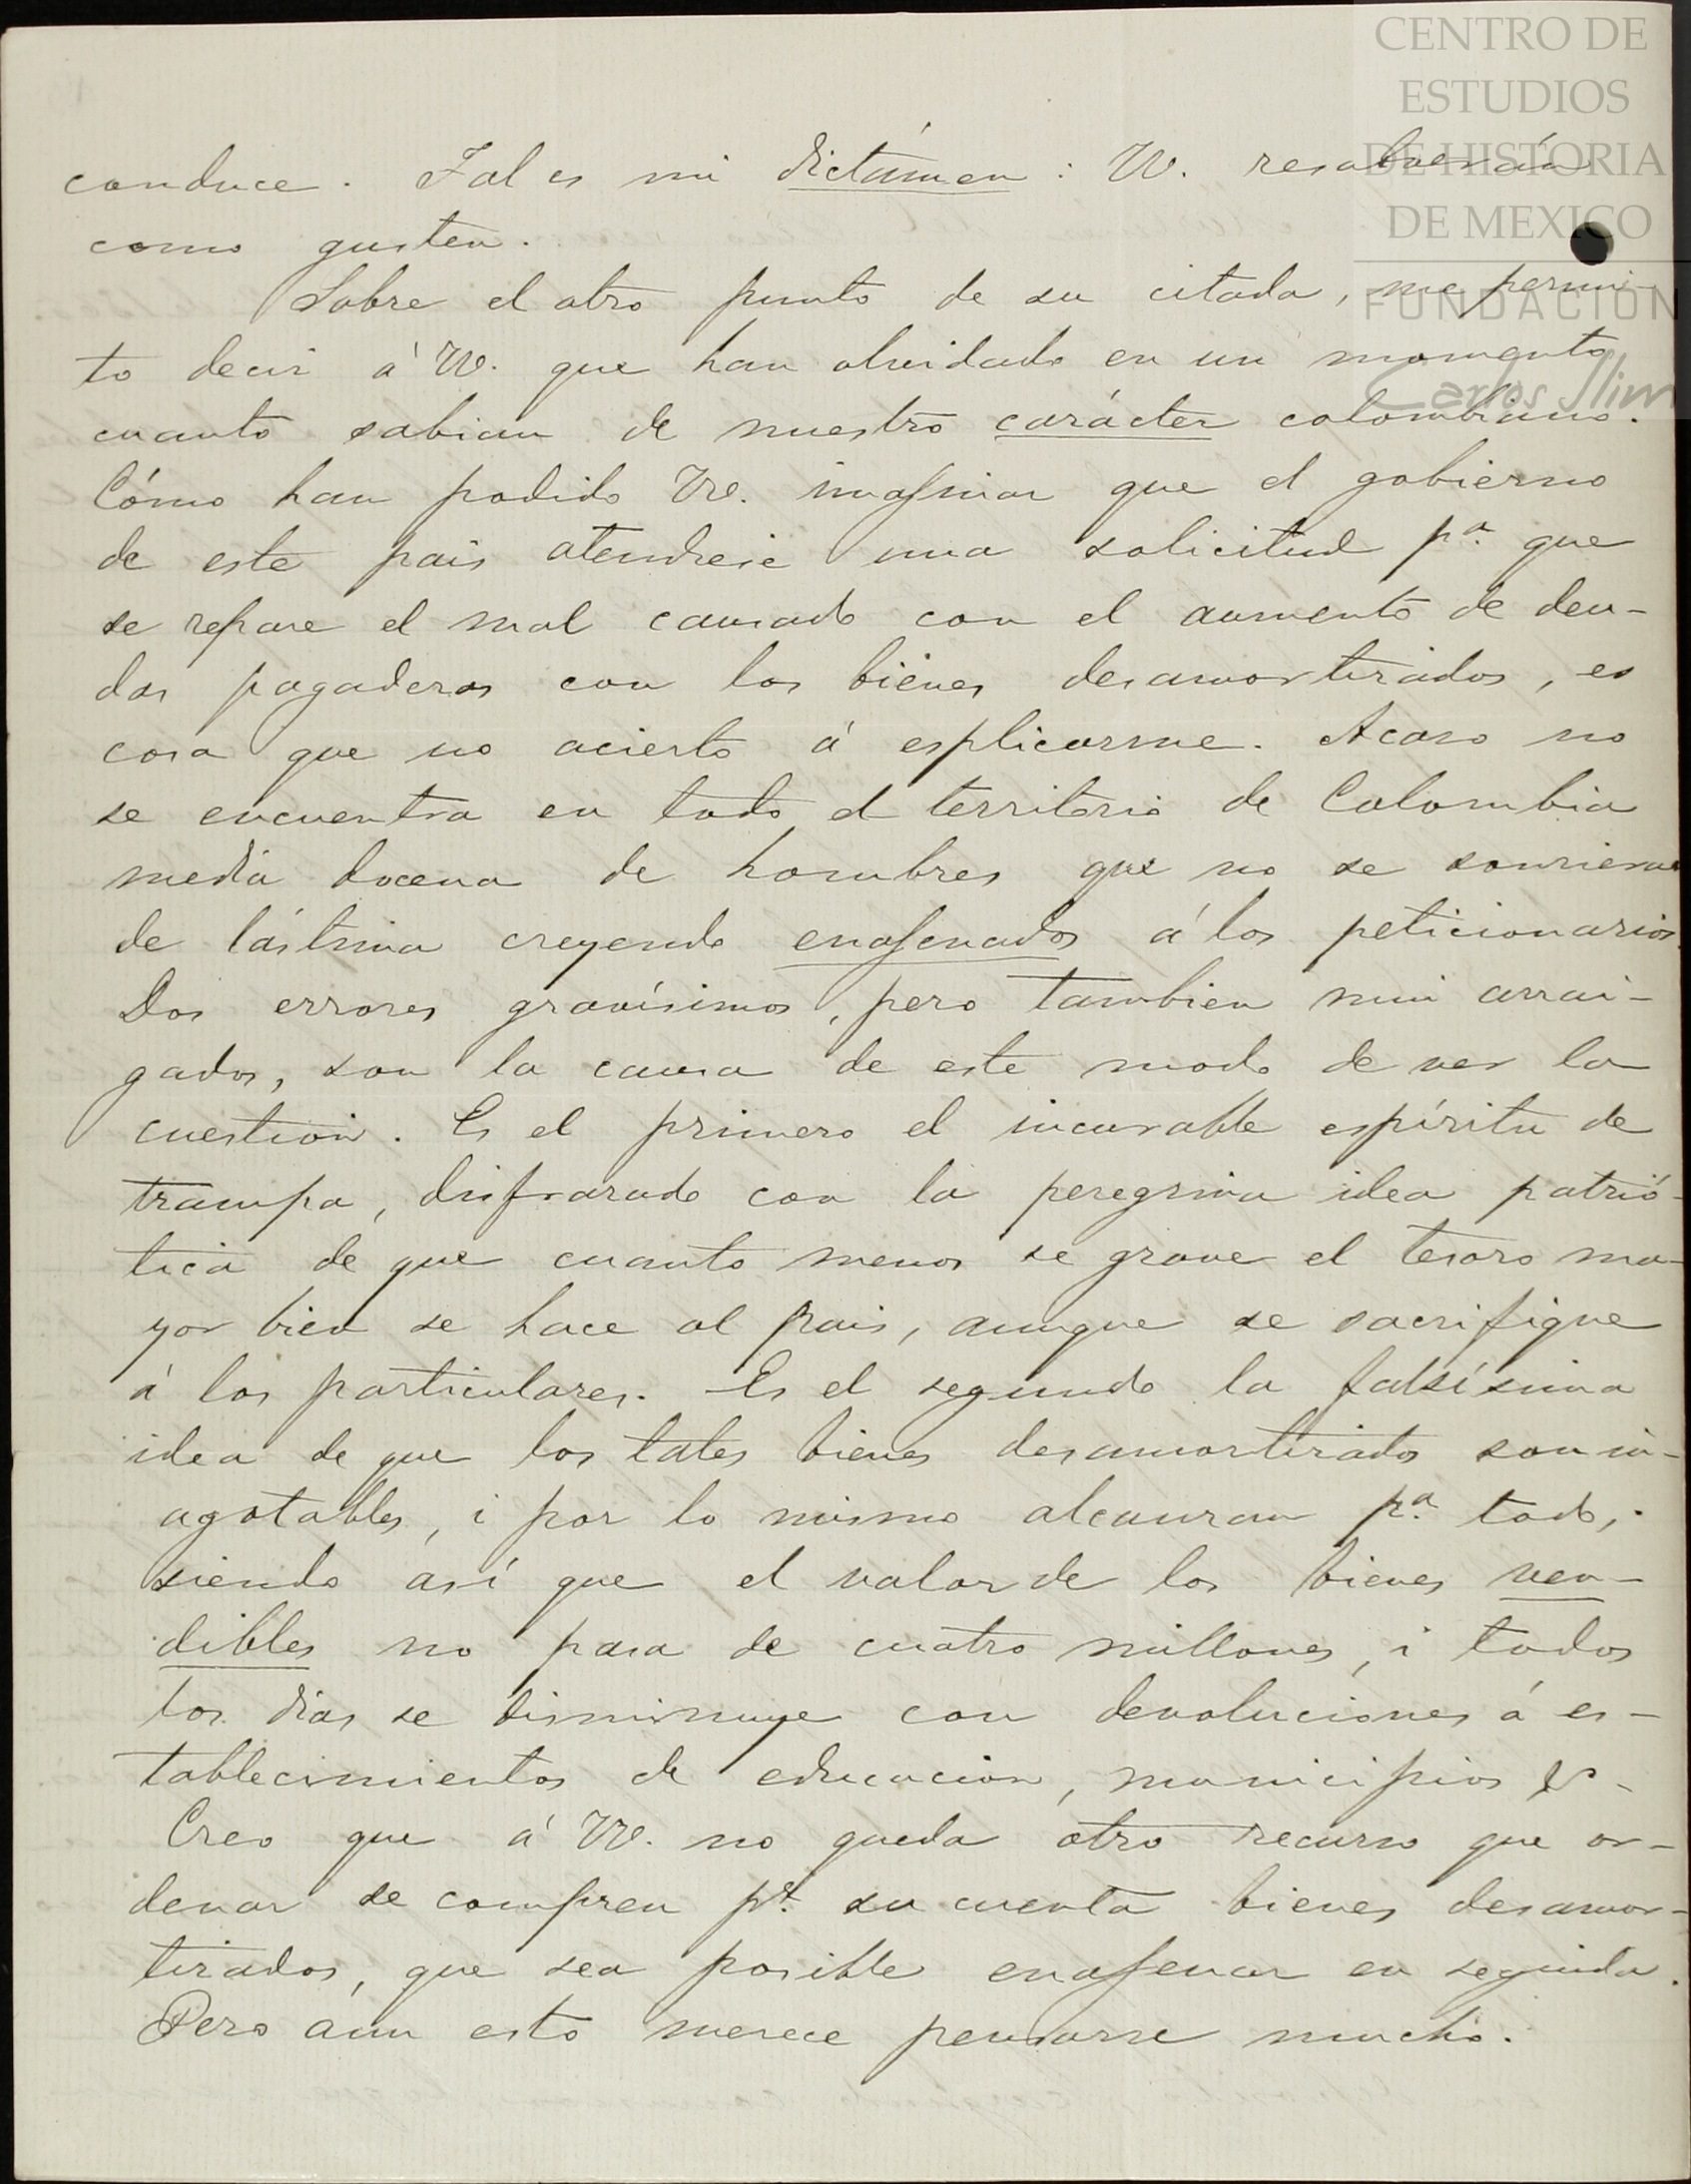 CENTRO DE
ESTUDIOS
DE HISTORIA
DE MEXICO
FUNDACIÓN
Carlos Slim
conduce. Tal es mi dictámen: VV. resolverán
como gusten.
Sobre el otro punto de su citada, me permi-
to decir á VV. que han olvidado en un momento
cuanto sabian de nuestro carácter colombiano.
Cómo han podido VV. imajinar que el gobierno
de este pais atendiese una solicitud pª. que
se repare el mal causado con el aumento de deu-
das pagaderas con los bienes desamortizados, es
cosa que no acierto á esplicarme. Acaso no
se encuentra en todo el territorio de Colombia
media docena de hombres que no se sonriesen
de lástima creyendo enajenados á los peticionarios.
Dos errores gravísimos, pero tambien mui arrai-
gados, son la causa de este modo de ver la
cuestion. Es el primero el incurable espíritu de
trampa, disfrazado con la peregrina idea patrió-
tica de que cuanto menos se grave el tesoro ma-
yor bien se hace al pais, aunque se sacrifique
á los particulares. Es el segundo la falsísima
idea de que los tales bienes desamortizados son in-
agotables, i por lo mismo alcanzan pª. todo,
siendo así que el valor de los bienes ven-
dibles no pasa de cuatro millones, i todos
los dias se disminuye con devoluciones á es-
tablecimientos de educacion, municipios &.
Creo que á VV. no queda otro recurso que or-
denar se compren pr. su cuenta bienes desamor-
tizados, que sea posible enajenar en seguida.
Pero aun esto merece pensarse mucho.